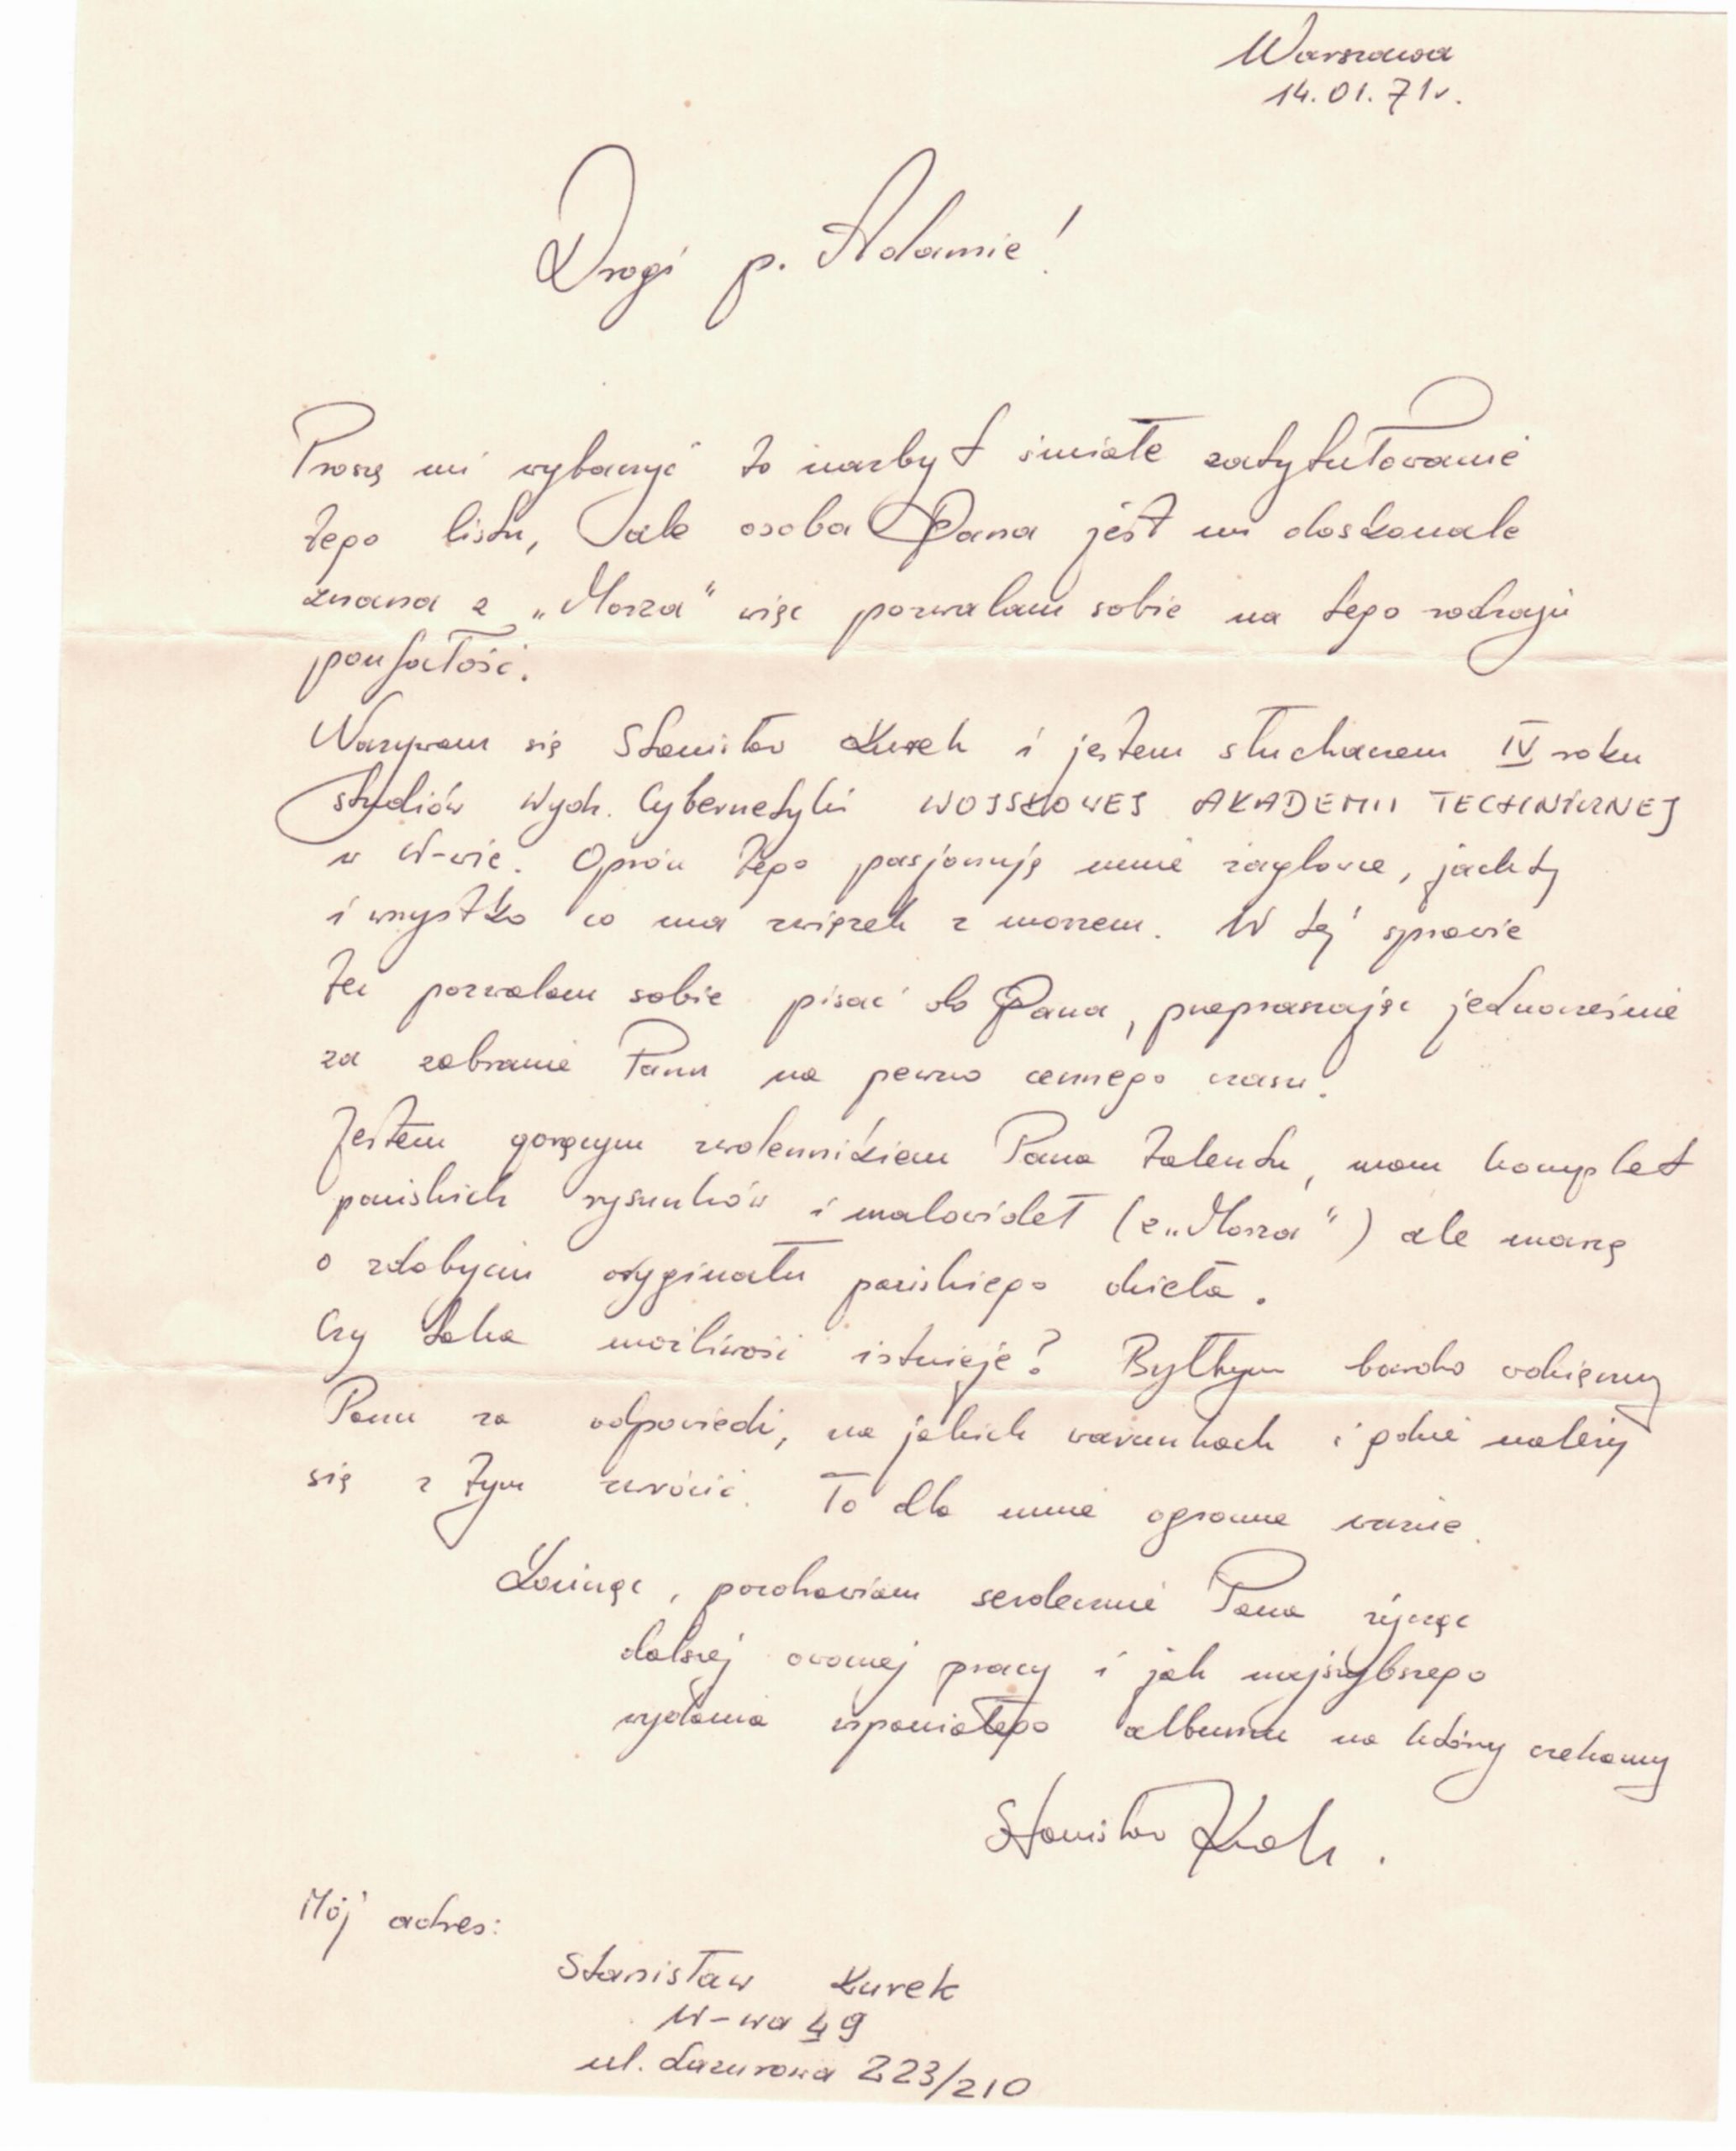 Warszawa
14.01.71r.
Drogi p. Adamie!
Proszę mi wybaczyć to nazbyt śmiałe zatytułowanie
tego listu, ale osoba Pana jest mi doskonale
znana z „Morza" więc pozwalam sobie na tego rodzaju
poufałość.
Nazywam się Stanisław Kurek i jestem słuchaczem IV roku
studiów Wydz. Cybernetyki WOJSKOWEJ AKADEMII TECHNICZNEJ
w W-wie. Oprócz tego pasjonują mnie żaglowce, jachty
i wszystko co ma związek z morzem. W tej sprawie
też pozwalam sobie pisać do Pana, przepraszając jednocześnie
za zabranie Panu na pewno cennego czasu.
Jestem gorącym zwolennikiem Pana talentu, mam komplet
pańskich rysunków i malowideł (z „Morza") ale marzę
o zdobyciu oryginału pańskiego dzieła.
Czy taka możliwość istnieje? Byłbym bardzo wdzięczny
Panu za odpowiedź, na jakich warunkach i gdzie należy
się z tym zwrócić. To dla mnie ogromnie ważne.
Kończąc, pozdrawiam serdecznie Pana życząc
dalszej owocnej pracy i jak najszybszego
wydania wspaniałego albumu na który czekamy
Stanisław Kurek.
Mój adres:
Stanisław Kurek
W-wa 49
ul. Lazurowa 223/210